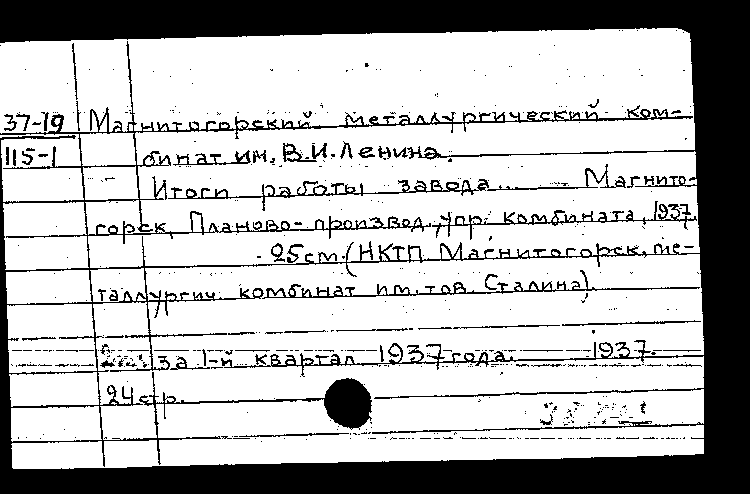 37-19 Магнитогорский металлургический ком-
115-1 бинат им. В.И.Ленина.
Итоги работы завода... Магнито-
горск, Планово-производ. упр. комбината, 1937.
25см. (НКТП Магнитогорск. ме-
таллургич. комбинат им. тов. Сталина).
за 1-й квартал 1937 года. 1937.
24 стр.